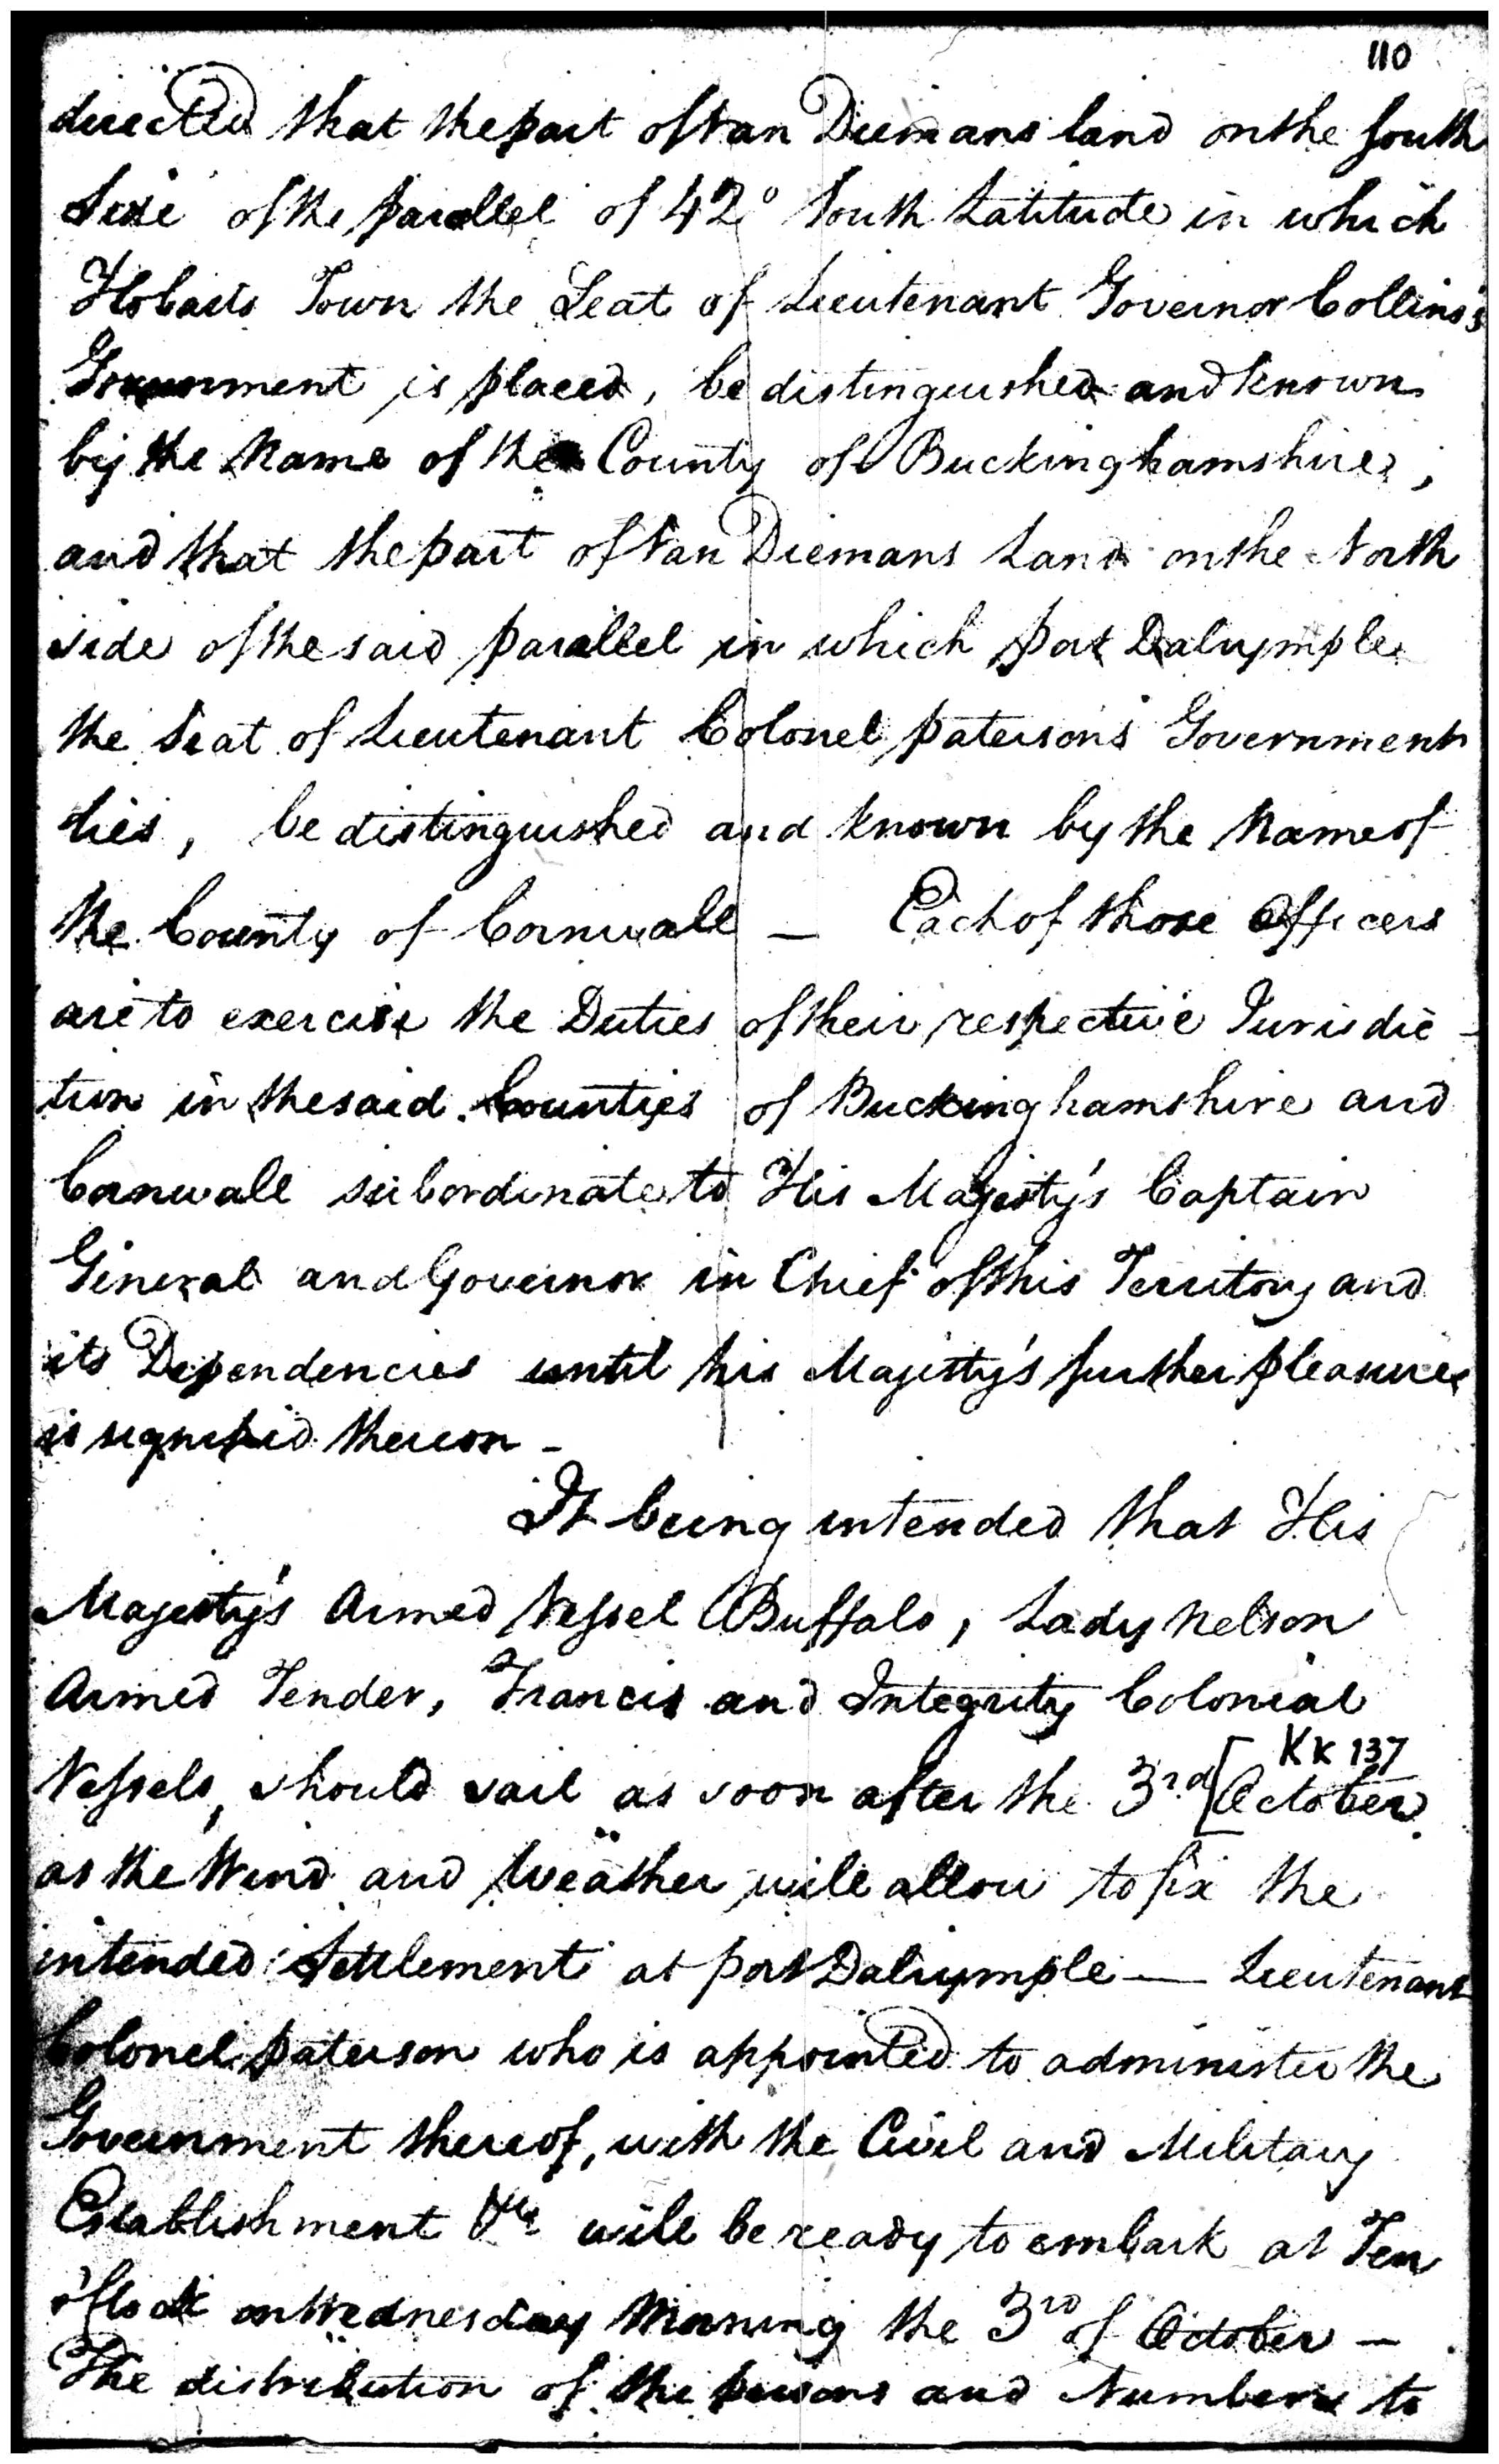 110
directed that the part of Van Diemans land on the South
Side of the parallel of 42° South Latitude in which
Hobarts Town the Seat of Lieutenant Governor Collins's
Government is placed, be distinguished and known
by the Name of the County of Buckinghamshire;
and that the part of Van Diemans Land on the North
side of the said parallel in which port Dalrymple
the Seat of Lieutenant Colonel paterson's Government
lies, be distinguished and known by the Name of
the County of Cornwall — Each of those Officers
are to exercise the Duties of their respective Jurisdic-
tion in the said Counties of Buckinghamshire and
Cornwall subordinate to His Majesty's Captain
General and Governor in Chief of this Territory and
its Dependencies until his Majesty's further pleasure
is signified thereon —
It being intended that His
Majesty's Armed Vessel Buffalo, Lady Nelson
Armed Tender, Francis and Integrity Colonial
KK 137
Vessels, should sail as soon after the 3rd [October
as the Wind and Weather will allow to fix the
intended Settlement at port Dalrymple — Lieutenant
Colonel paterson who is appointed to administer the
Government thereof, with the Civil and Military
Establishment &ca will be ready to embark at Ten
o'Clock on Wednesday Morning the 3rd of October —
The distribution of the persons and Numbers to